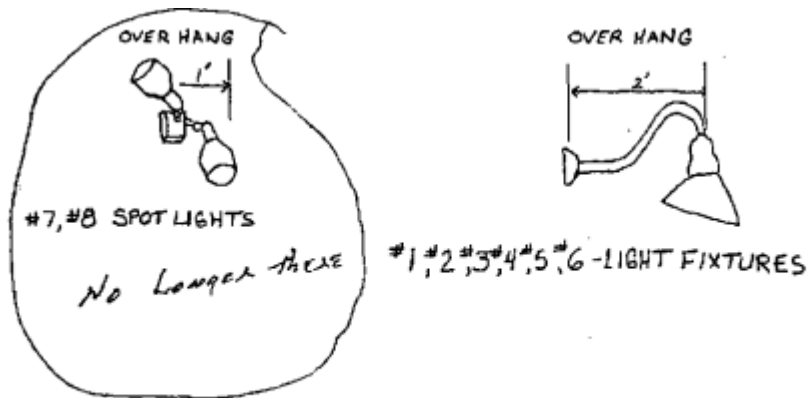 OVER HANG
1'
#7, #8 SPOT LIGHTS
No Longer there
OVER HANG
2'
#1, #2, #3, #4, #5, #6 - LIGHT FIXTURES